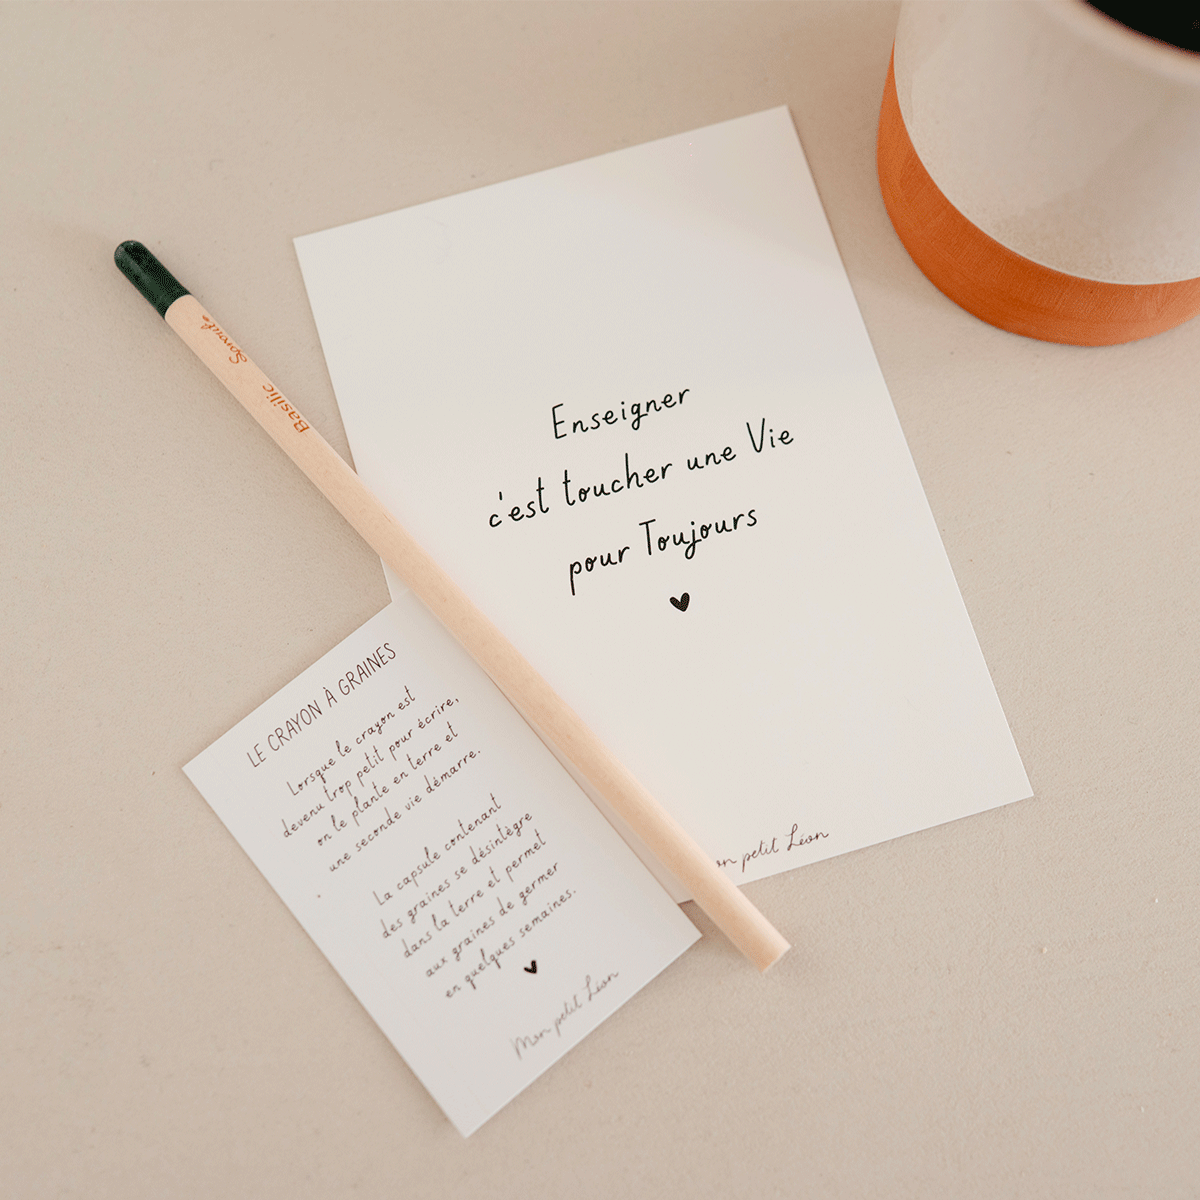 Enseigner
c'est toucher une Vie
pour Toujours
petit Léon
Basilic
LE CRAYON À GRAINES
Lorsque le crayon est
devenu trop petit pour écrire,
on le plante en terre et
une seconde vie démarre.
La capsule contenant
des graines se désintègre
dans la terre et permet
aux graines de germer
en quelques semaines.
Mon petit Léon